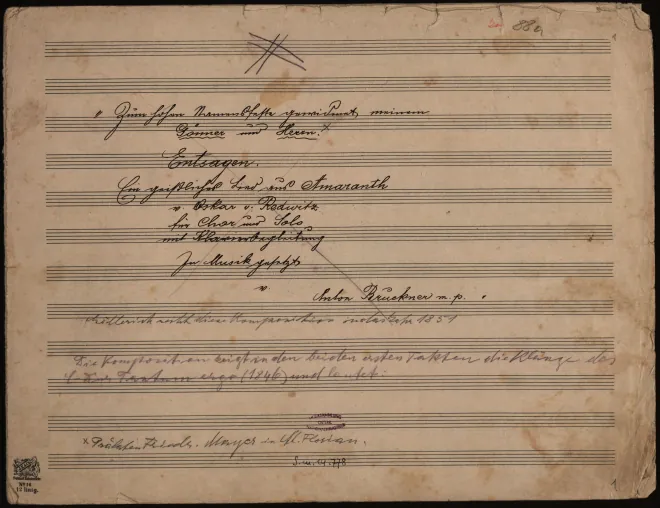 88a
Zum hohen Namensfeste gewidmet meinem
Gönner und Herrn. x
Entsagen.
Ein geistliches Lied aus Amaranth
v Oskar v. Redwitz
für Chor und Solo
mit Klavierbegleitung
In Musik gesetzt
v
Anton Bruckner m.p.
diese Komposition 1851
Die Komposition zeigt in den beiden ersten Takten die Klänge des
Tantum ergo (1846) und lautet:
x Prälaten Mayer in St. Florian.
S.m. 14.778
No 10
12 linig.